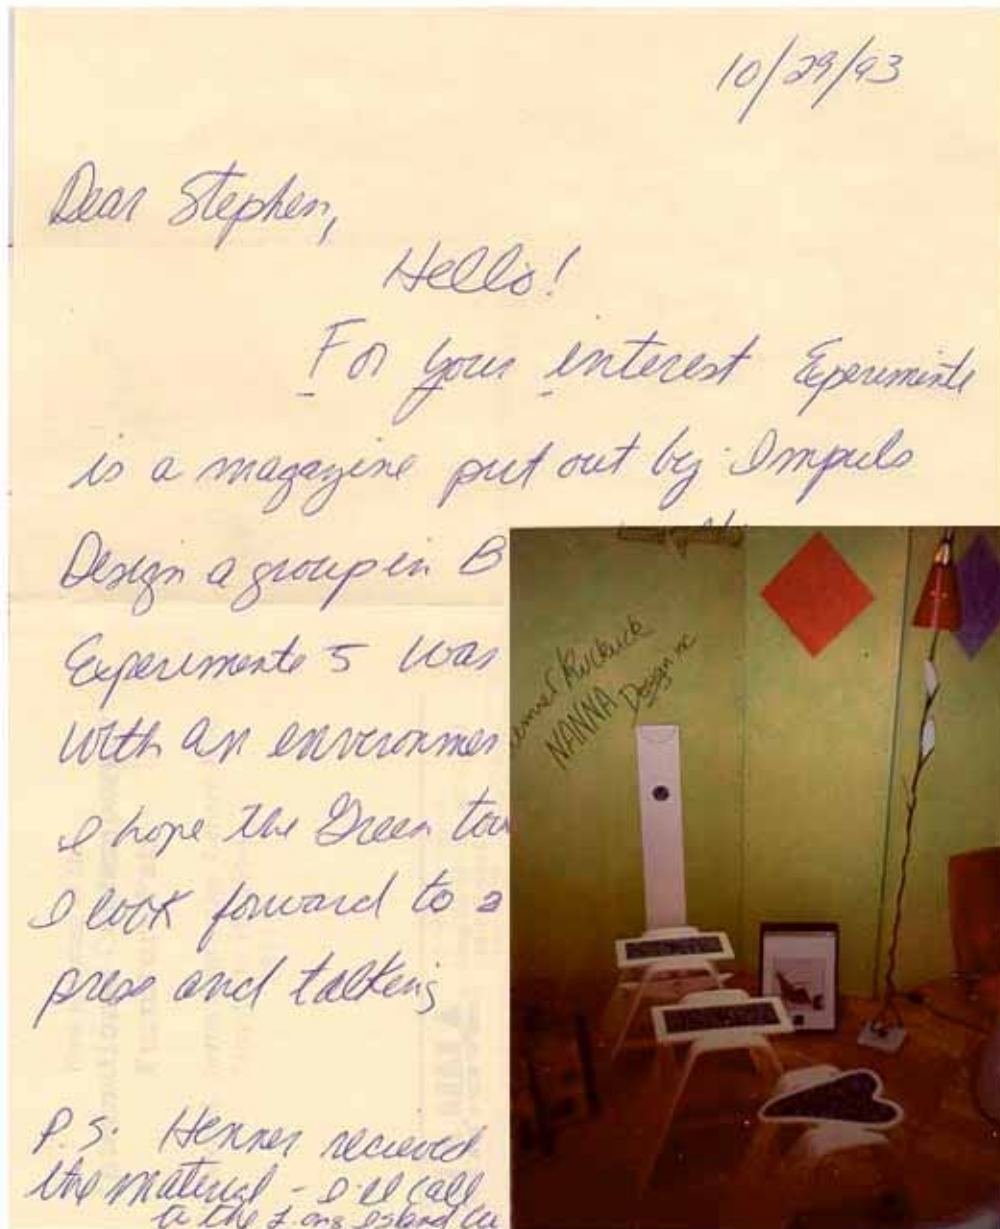 10/29/93
Dear Stephen,
Hello!
For your interest Experimente
is a magazine put out by Impuls
Design a group in B
Experimente 5 was
with an environmen
I hope the Green tou
I look forward to a
press and talking
P.S. Henner recieved
the material - I'll call
to the Long Island
Kuckuck
NANNA Design inc